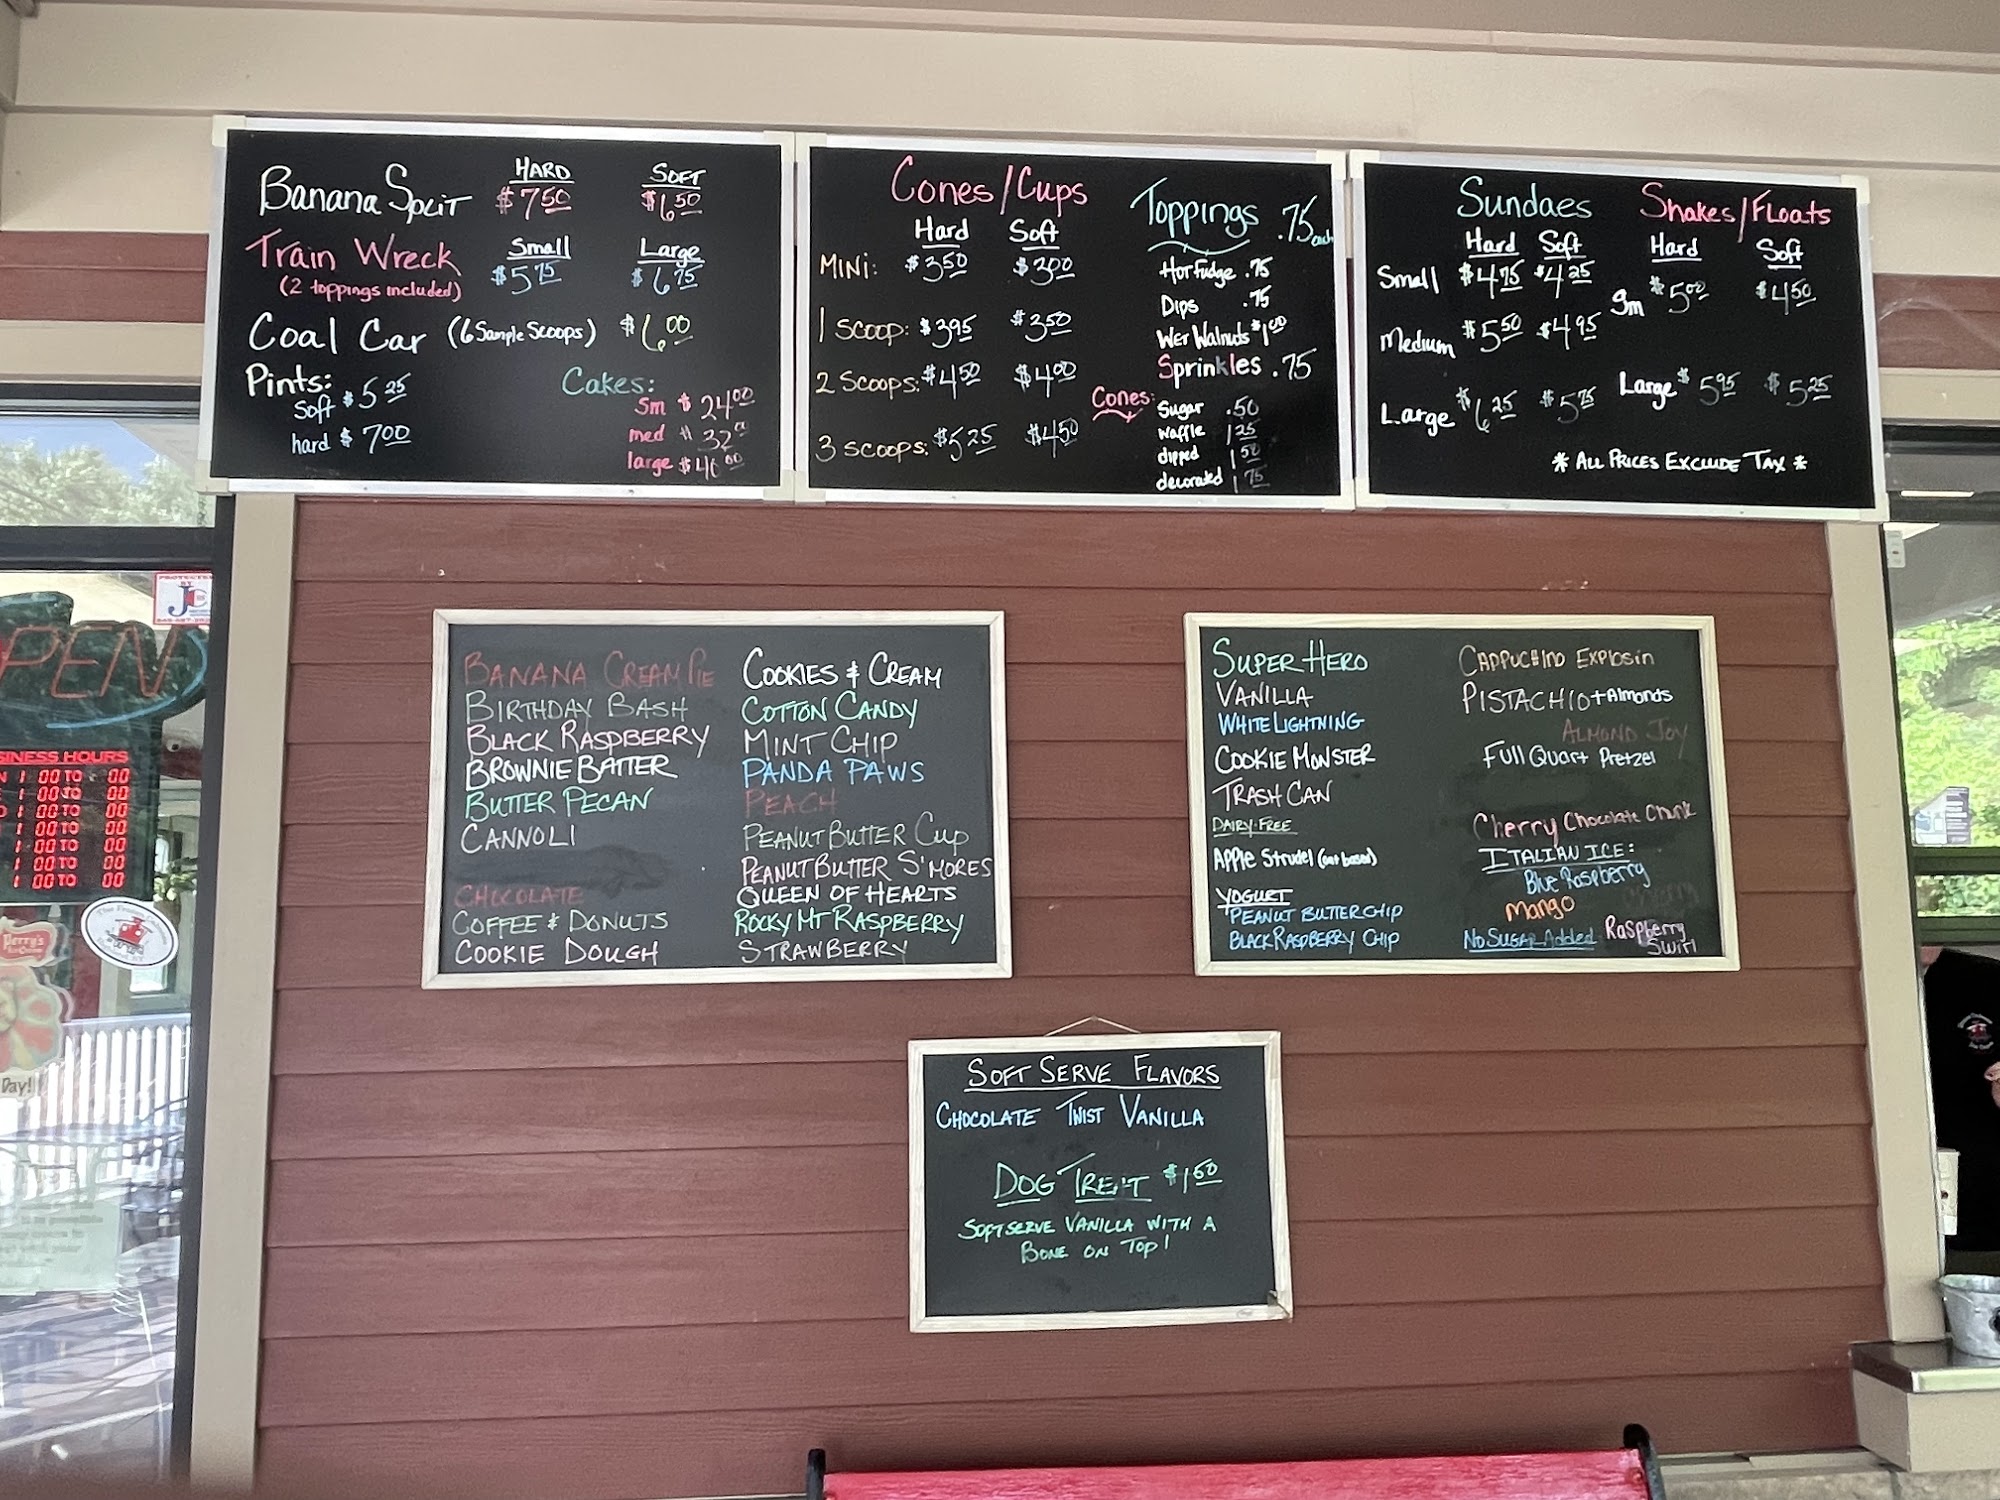 HARD SOFT
Banana Split $7.50 $6.50
Train Wreck Small Large
(2 toppings included) $5.75 $6.75
Coal Car (6 Sample Scoops) $6.00
Pints:
Soft $5.25
hard $7.00
Cakes:
Sm $24.00
med $32.00
large $40.00
Cones/Cups
Hard Soft
MINi: $3.50 $3.00
1 SCOOP: $3.95 $3.50
2 SCOOPS: $4.50 $4.00
3 SCOOPS: $5.25 $4.50
Toppings .75 each
Hot Fudge .75
Dips .75
Wet Walnuts $1.00
Sprinkles .75
Cones:
Sugar .50
waffle 1.25
dipped 1.50
decorated 1.75
Sundaes
Hard Soft
Small $4.75 $4.25
Medium $5.50 $4.95
Large $6.25 $5.75
Shakes/Floats
Hard Soft
Sm $5.00 $4.50
Large $5.95 $5.25
* ALL PRICES EXCLUDE TAX *
BANANA CREAM PIE
BIRTHDAY BASH
BLACK RASPBERRY
BROWNIE BATTER
BUTTER PECAN
CANNOLI
CHOCOLATE
COFFEE & DONUTS
COOKIE DOUGH
COOKIES & CREAM
COTTON CANDY
MINT CHIP
PANDA PAWS
PEACH
PEANUT BUTTER CUP
PEANUT BUTTER S'MORES
QUEEN OF HEARTS
ROCKY MT RASPBERRY
STRAWBERRY
SUPER HERO
VANILLA
WHITE LIGHTNING
COOKIE MONSTER
TRASH CAN
DAIRY-FREE
Apple Strudel (oat based)
YOGURT
PEANUT BUTTER CHIP
BLACK RASPBERRY CHIP
CAPPUCHINO EXPlOSiN
PISTACHIO + Almonds
ALMOND JOY
Full Quart Pretzel
Cherry Chocolate Chunk
ITALIAN ICE:
Blue Raspberry
Cherry
Mango
No SUGAR Added Raspberry
Swirl
SOFT SERVE FLAVORS
CHOCOLATE TWIST VANILLA
DOG TREAT $1.50
SOFT SERVE VANILLA WITH A
BONE ON TOP!
PROTECTED
BY
OPEN
BUSINESS HOURS
1 00 TO 00
1 00 TO 00
1 00 TO 00
1 00 TO 00
1 00 TO 00
1 00 TO 00
1 00 TO 00
Perry's
Day!